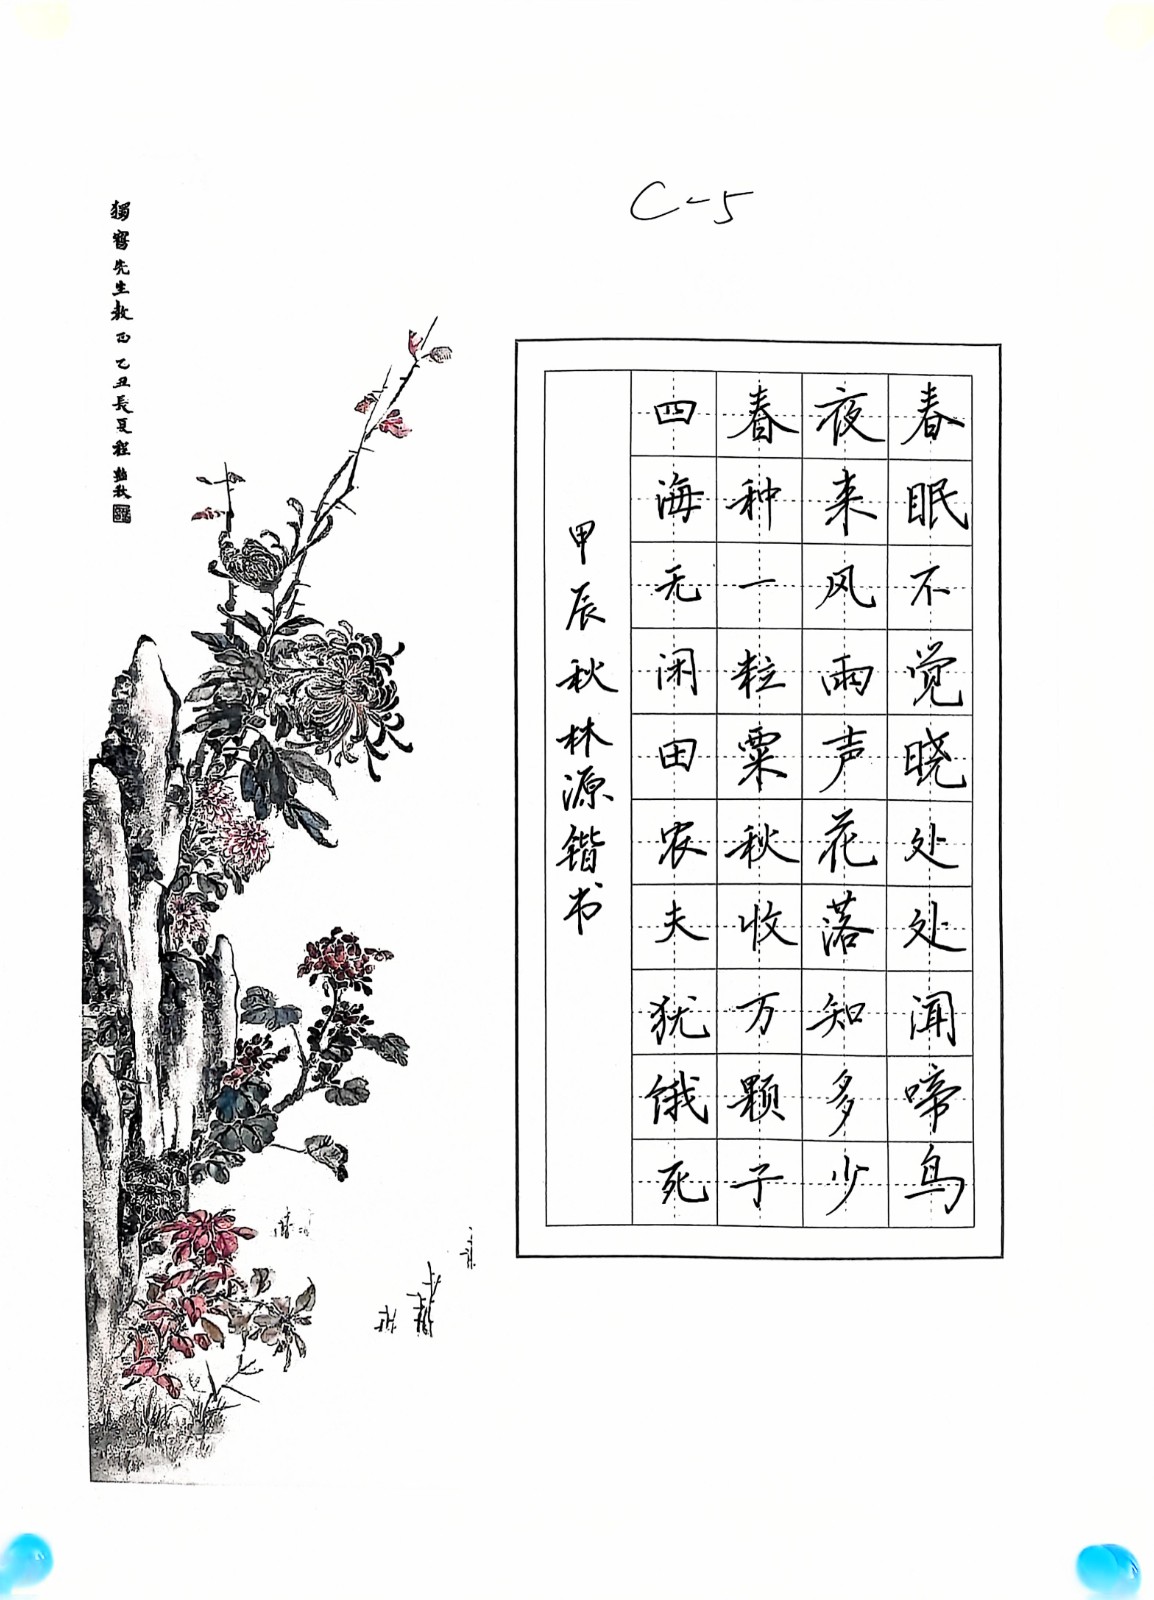 C-5
春眠不觉晓处处闻啼鸟
夜来风雨声花落知多少
春种一粒粟秋收万颗子
四海无闲田农夫犹饿死
甲辰秋林源锴书
先生教正乙丑長夏程